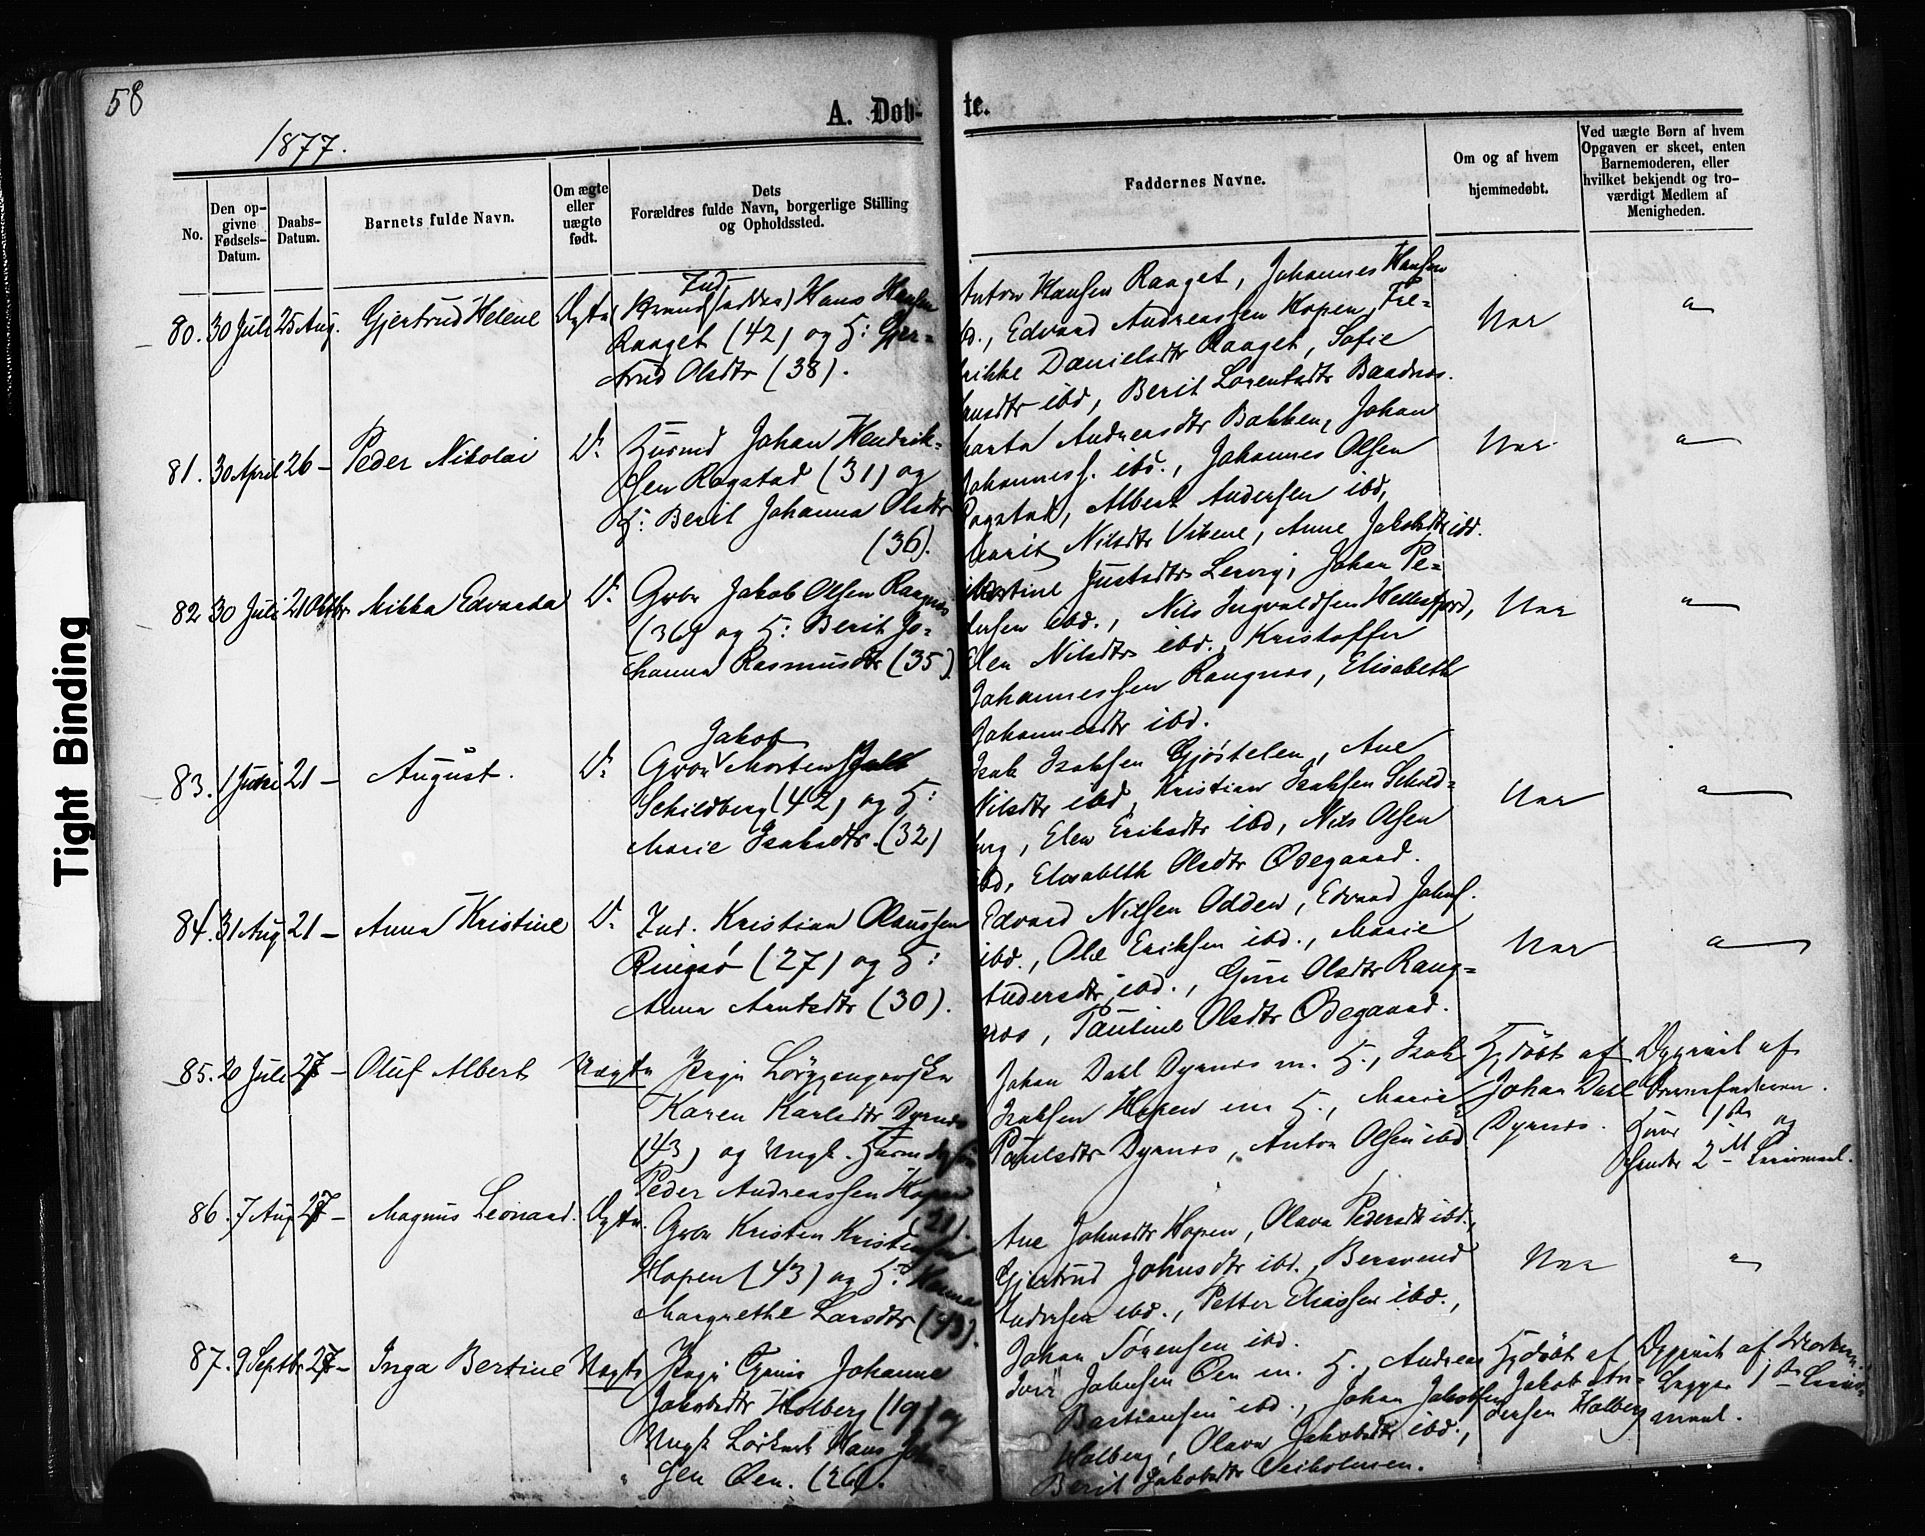 58
A. Døb-
te.
1877.
No.
Den op-
givne
Fødsels-
Datum.
Daabs-
Datum.
Barnets fulde Navn.
Om ægte
eller
uægte
født.
Dets
Forældres fulde Navn, borgerlige Stilling
og Opholdssted.
Faddernes Navne.
Om og af hvem
hjemmedøbt.
Ved uægte Børn af hvem
Opgaven er skeet, enten
Barnemoderen, eller
hvilket bekjendt og tro-
værdigt Medlem af
Menigheden.
80. 30 Juli 25 Aug. Gjertrud Helene Ind Hans Hansen
Raaget (42) og H: Gjer-
trud Olsdtr (38).
Anton Hansen Raaget, Johannes Hansen
ibd., Edvard Andreassen Hopen, Fre-
rikke Danielsdtr Raaget, Sofie
ibd, Berit Lorentsdtr Baadnæs.
81. 30 April 26 — Peder Nikolai Do Husmd Johan Hendrik-
sen Rogstad (31) og
H: Berit Johanna Olsdtr
(36).
Andreasdtr Bakken, Johan
Johanness. ibd., Johannes Olsen
Rogstad, Albert Andersen ibd,
Marit Nilsdtr Vikene, Anne Jakobsdtr ibd.
82 30 Juli 21 Oktbr Mikka Edvarda Do Gbr Jakob Olsen Rangnæs
(36) og H: Berit Jo-
hanna Rasmusdtr (35)
Justsdtr Lervig, Johan Pe-
dersen ibd., Nils Ingvaldsen Hellesfjord,
Elen Nilsdtr ibd., Kristoffer
Johannessen Rangnæs, Elisabeth
Johannesdtr ibd.
83. 1 Juni 21 — August. Do Jakob
Gbr Morten
Schildberg (42) og H:
Marie Isaksdtr. (32)
Isak Isaksen Gjøstelen, Ane
Nilsdtr ibd, Kristian Isaksen Schild-
berg, Elen Eriksdtr ibd, Nils Olsen
ibd, Elisabeth Olsdtr Ødegaard.
84. 31 Aug 21 — Anna Kristine Do Ind. Kristian Olaussen
Ringsø (27) og H:
Anna Arntsdtr (30).
Edvard Nilsen Odden, Edvard Johns.
ibd., Ole Eriksen ibd., Marie
Andersdtr ibd., Guri Olsdtr Rang-
næs, Pauline Olsdtr Ødegaard.
85. 20 Juli 27 — Oluf Albert Uægte Pige
Karen Karlsdtr Dyrnæs
(43) og Ungk.
Peder Andreassen Hopen
(21).
Johan Dahl Dyrnæs m. H., Isak
Isaksen Hopen m H., Marie
Paulsdtr Dyrnæs, Anton Olsen ibd
Hjdøbt af
Johan Dahl
Dyrnæs.
Opgivet af
Barnefaderen.
Hans 1ste og
hendes 2det Leiermaal.
86. 7 Aug 27 — Magnus Leonard. Ægte. Gbr Kristen Kristensen
Hopen (43) og H: Hanna
Margrethe Larsdtr (43).
Ane Johnsdtr Hopen, Olava Pedersdtr ibd.,
Gjertrud Johnsdtr ibd., Bersvend
Andersen ibd., Petter Eliassen ibd.,
Johan Sørensen ibd.
87. 9 Septbr 27 — Inga Bertine Uægte Pige Johanna
Jakobsdtr Holberg (19) og
Ungk Hans John-
sen Øen. (26).
Johnsen Øen m. H., Andreas
Bastiansen ibd., Johan Jakobsen
Holberg, Olava Jakobsdtr ibd.,
Berit Jakobsdtr
Hjdøbt af
Jakob An-
dersen Holberg
Opgivet af Moderen.
Begges 1ste Leier-
maal.
Tight Binding